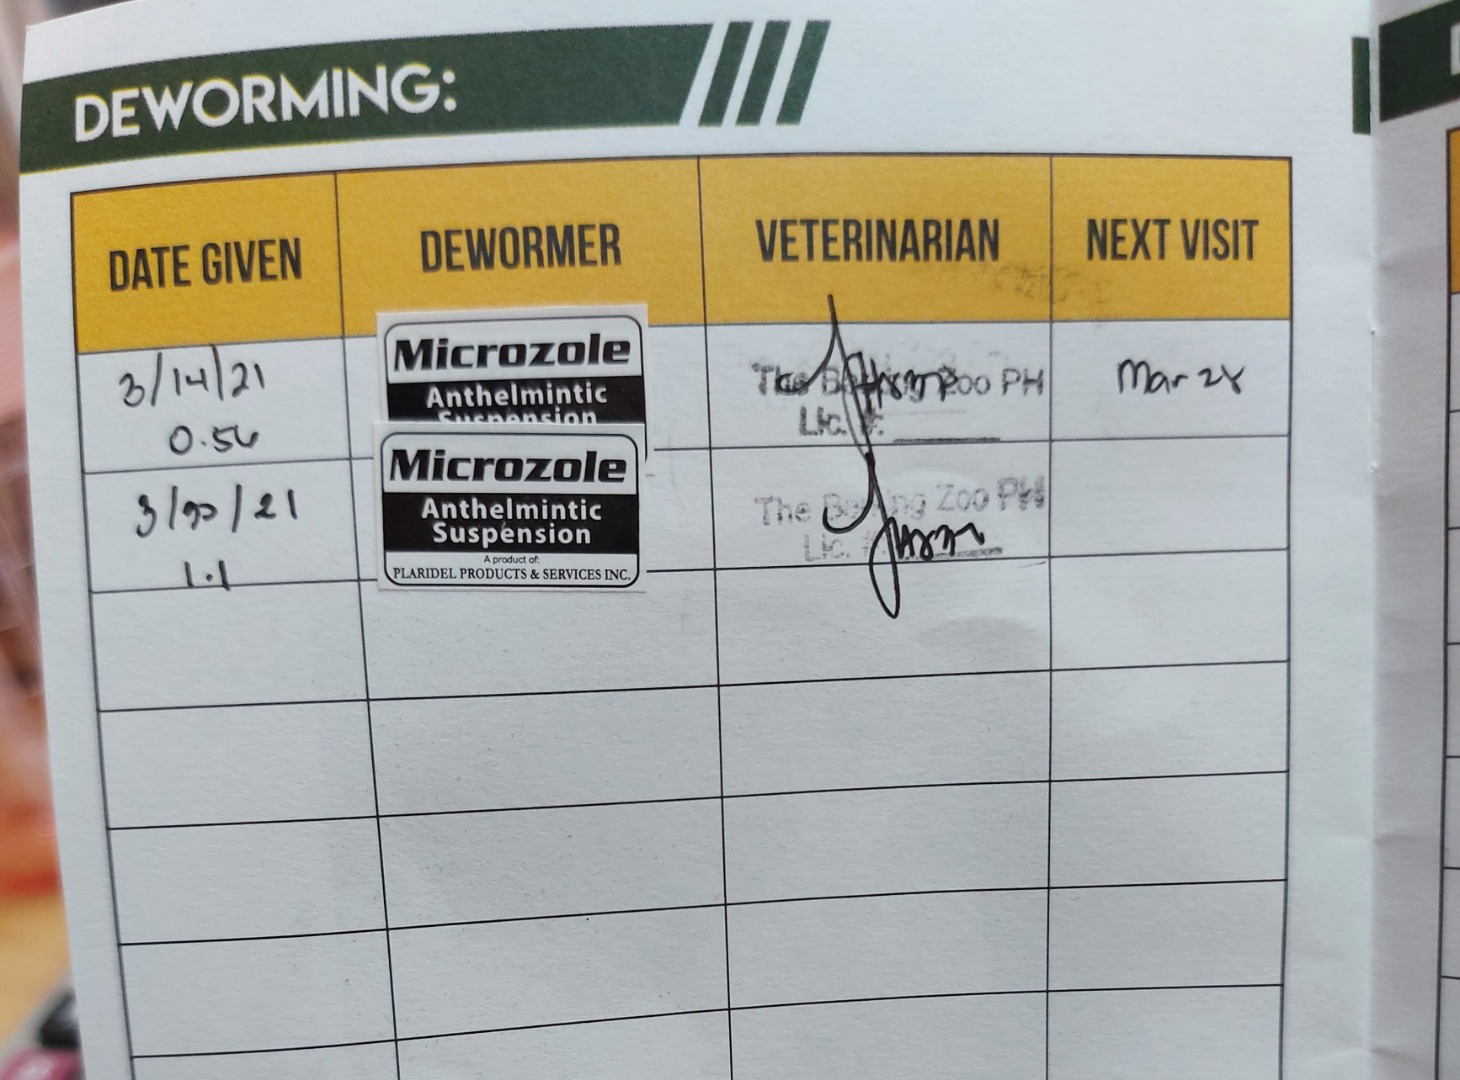 DEWORMING:
DATE GIVEN DEWORMER VETERINARIAN NEXT VISIT
3/14/21
0.56
Microzole
Anthelmintic
Suspension
The Zoo PH
Lic. #:
Mar 28
3/ /21
1.1
Microzole
Anthelmintic
Suspension
A product of:
PLARIDEL PRODUCTS & SERVICES INC.
The Zoo PH
Lic. #